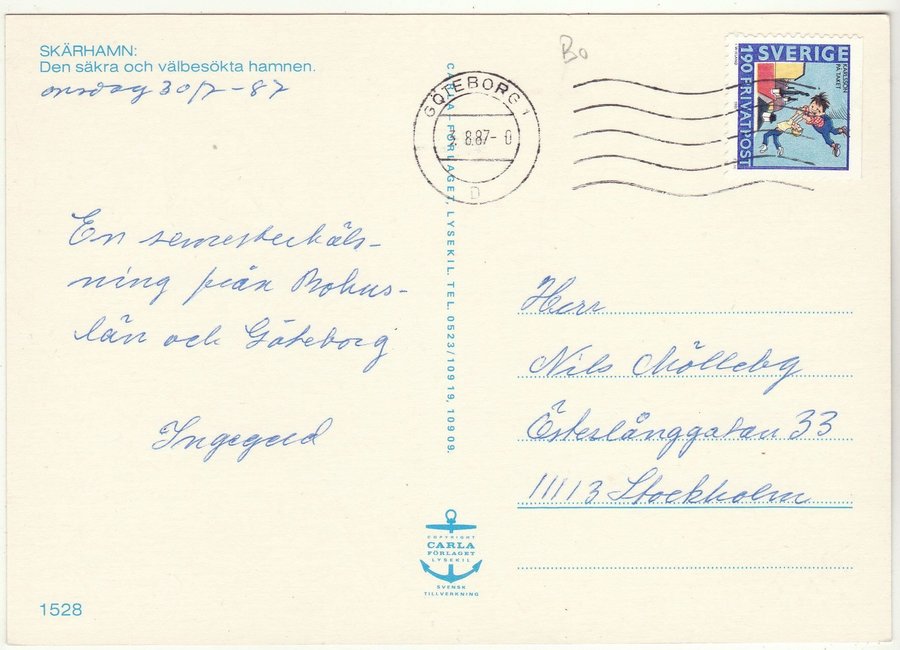 SKÄRHAMN:
Den säkra och välbesökta hamnen.
onsdag 30/7-87
En semesterhäls-
ning från Bohus-
län och Göteborg
Ingegerd
1528
CARLA-FÖRLAGET, LYSEKIL. TEL. 0523/109 19, 109 09.
COPYRIGHT
CARLA
FÖRLAGET
LYSEKIL
SVENSK
TILLVERKNING
GÖTEBORG 1
8.87-0
D
Bo
SVERIGE
190 FRIVATPOST
KARLSSON
PÅ TAKET
Herr
Nils Mölleby
Österlånggatan 33
11113 Stockholm